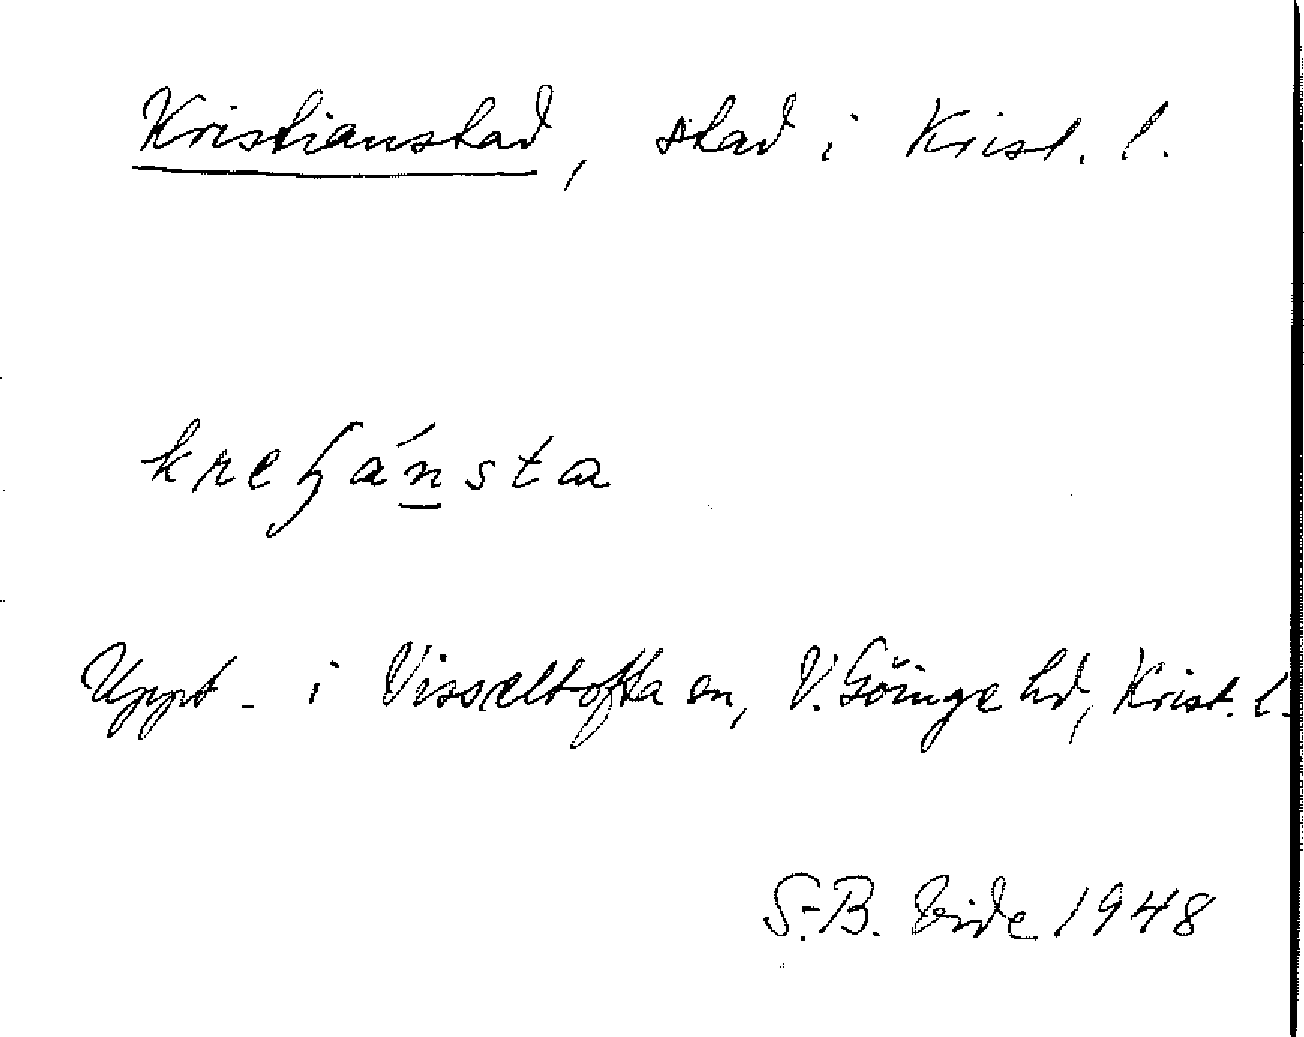 Kristianstad, stad i Krist. l.
kreɧánsta
Uppt. i Visseltofta sn, V. Göinge hd, Krist. l.
S.-B. Vide 1948